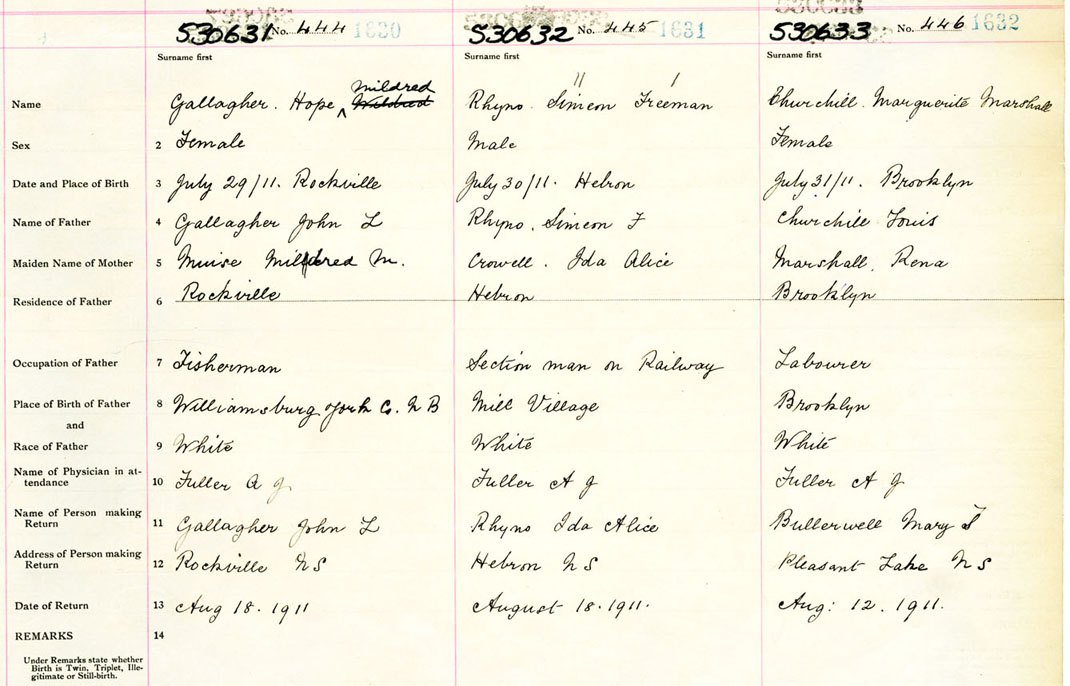 530631 No. 444 1630 530632 No. 445 1631 530633 No. 446 1632
Surname first Surname first Surname first
Mildred
Name Gallagher. Hope ^ Wildred Rhyno. Simeon Freeman Churchill. Marguerite Marshall
Sex 2 Female Male Female
Date and Place of Birth 3 July 29/11. Rockville July 30/11. Hebron July 31/11. Brooklyn
Name of Father 4 Gallagher John L Rhyno. Simeon F Churchill Louis
Maiden Name of Mother 5 Muise Mildred M. Crowell. Ida Alice Marshall, Rena
Residence of Father 6 Rockville Hebron Brooklyn
Occupation of Father 7 Fisherman Section man on Railway Labourer
Place of Birth of Father 8 Williamsburg York Co. N B Mill Village Brooklyn
and
Race of Father 9 White White White
Name of Physician in at-
tendance 10 Fuller A J. Fuller A J Fuller A J
Name of Person making
Return 11 Gallagher John L Rhyno Ida Alice Bullerwell Mary
Address of Person making
Return 12 Rockville N S Hebron N S Pleasant Lake N S
Date of Return 13 Aug 18. 1911 August 18. 1911. Aug: 12. 1911.
REMARKS 14
Under Remarks state whether
Birth is Twin, Triplet, Ille-
gitimate or Still-birth.